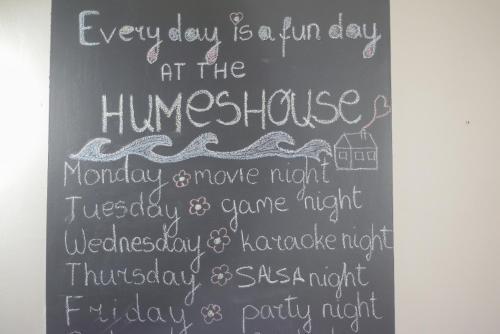 Every day is a fun day
AT THE
HUMESHOUSE
Monday movie night
Tuesday game night
Wednesday karaoke night
Thursday SALSA night
Friday party night